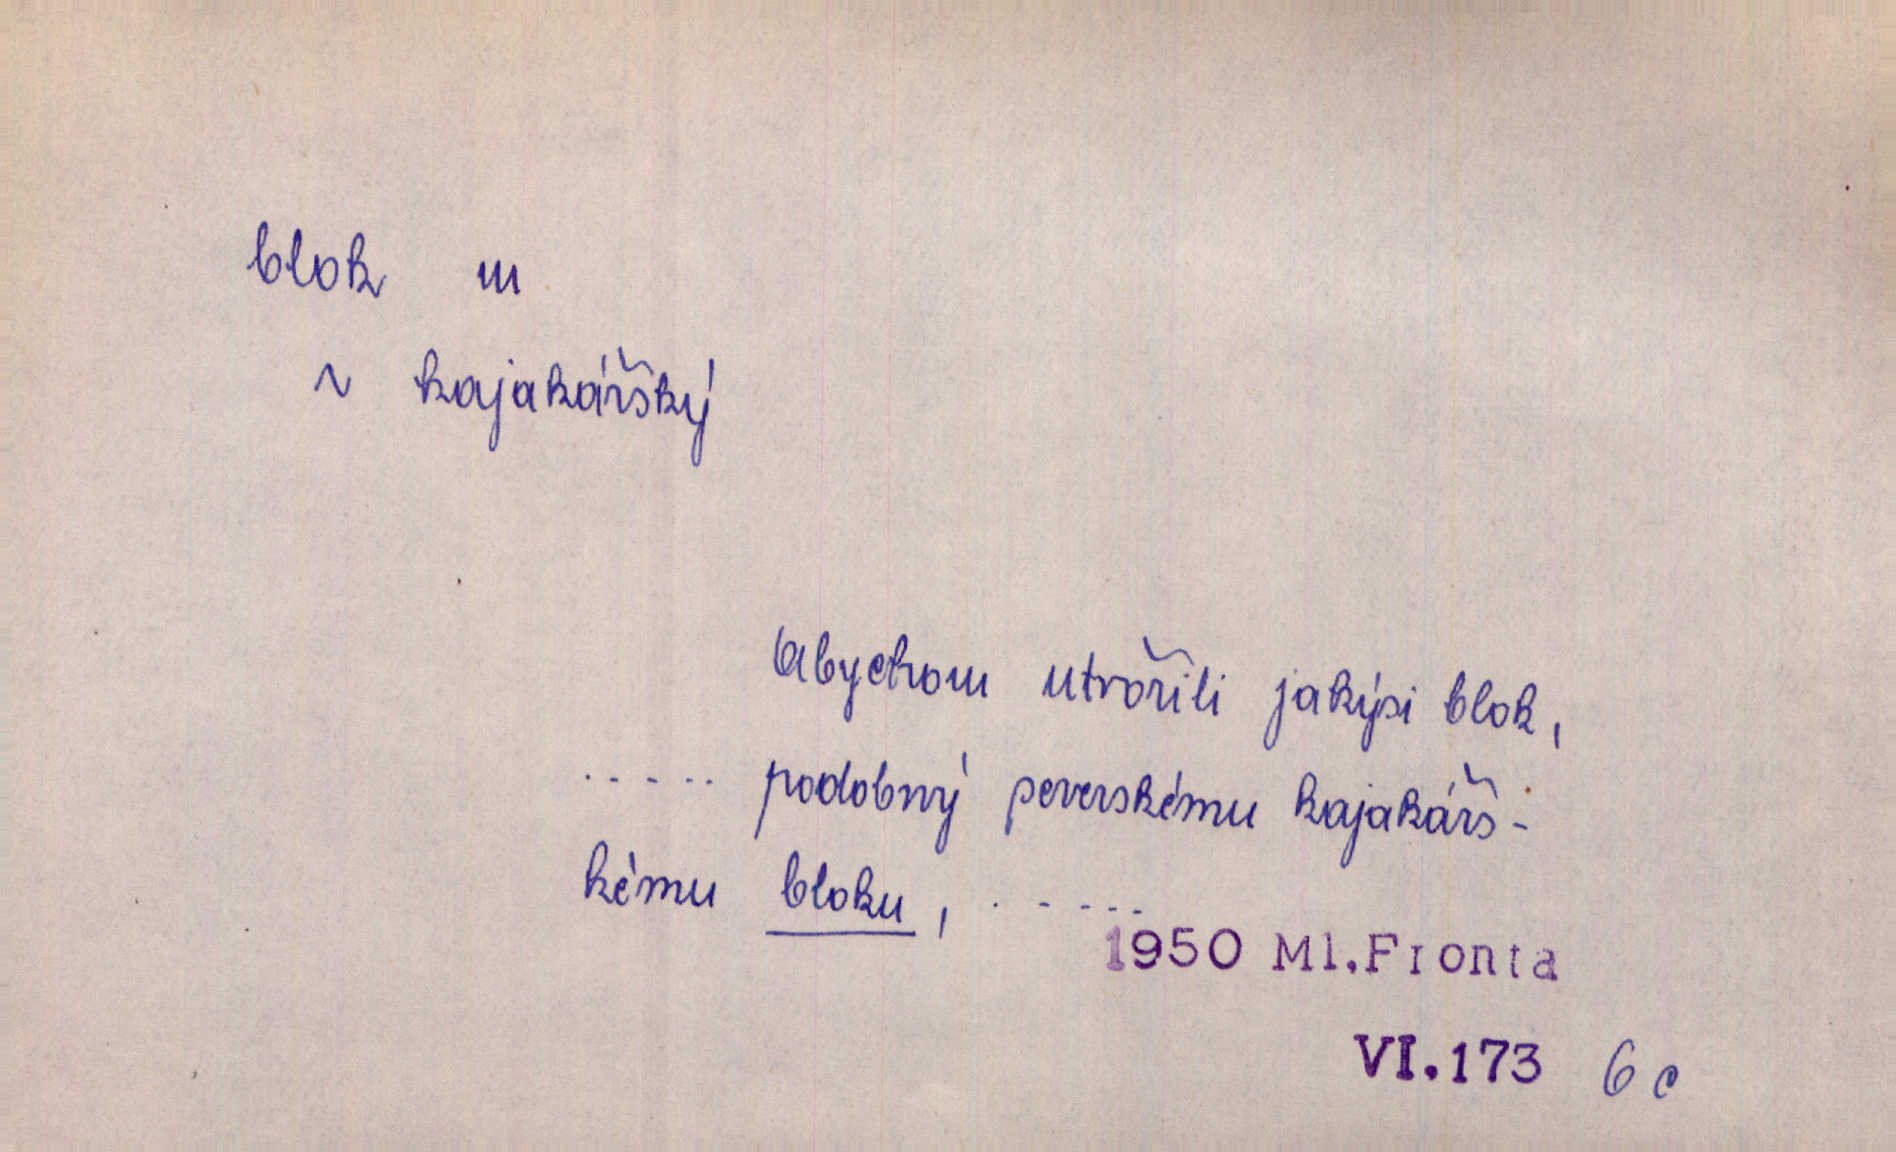 blok m
~ kajakářský
Abychom utvořili jakýsi blok,
..... podobný severskému kajakářs-
kému bloku, .....
1950 Ml.Fronta
VI.173 6c